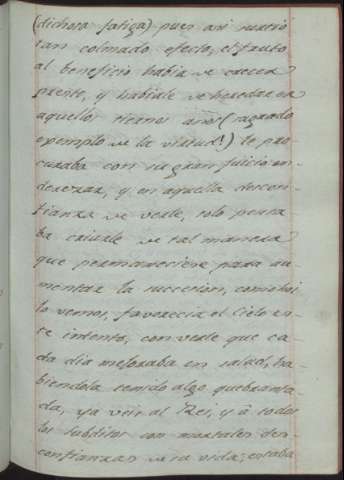 (dichosa fatiga) pues asi surtió
tan colmado efecto, el fruto
al beneficio había de crecer
presente, y habiale de heredar en
aquellos tiernos años (sagrado
exemplo de la virtud!) le pro
curaba con su gran juicio en
derezar, y en aquella descon
fianza de verle, solo pensa
ba criarle de tal manera
que permaneciese para au
mentar la succesion, como hoi
lo vemos, favorecia el Cielo es
te intento, con verle que ca
da dia mejoraba en salud, ha
biendola tenido algo quebranta
da, ya veìa al Rei, y à todos
los subditos con mortales des
confianzas de su vida; estaba